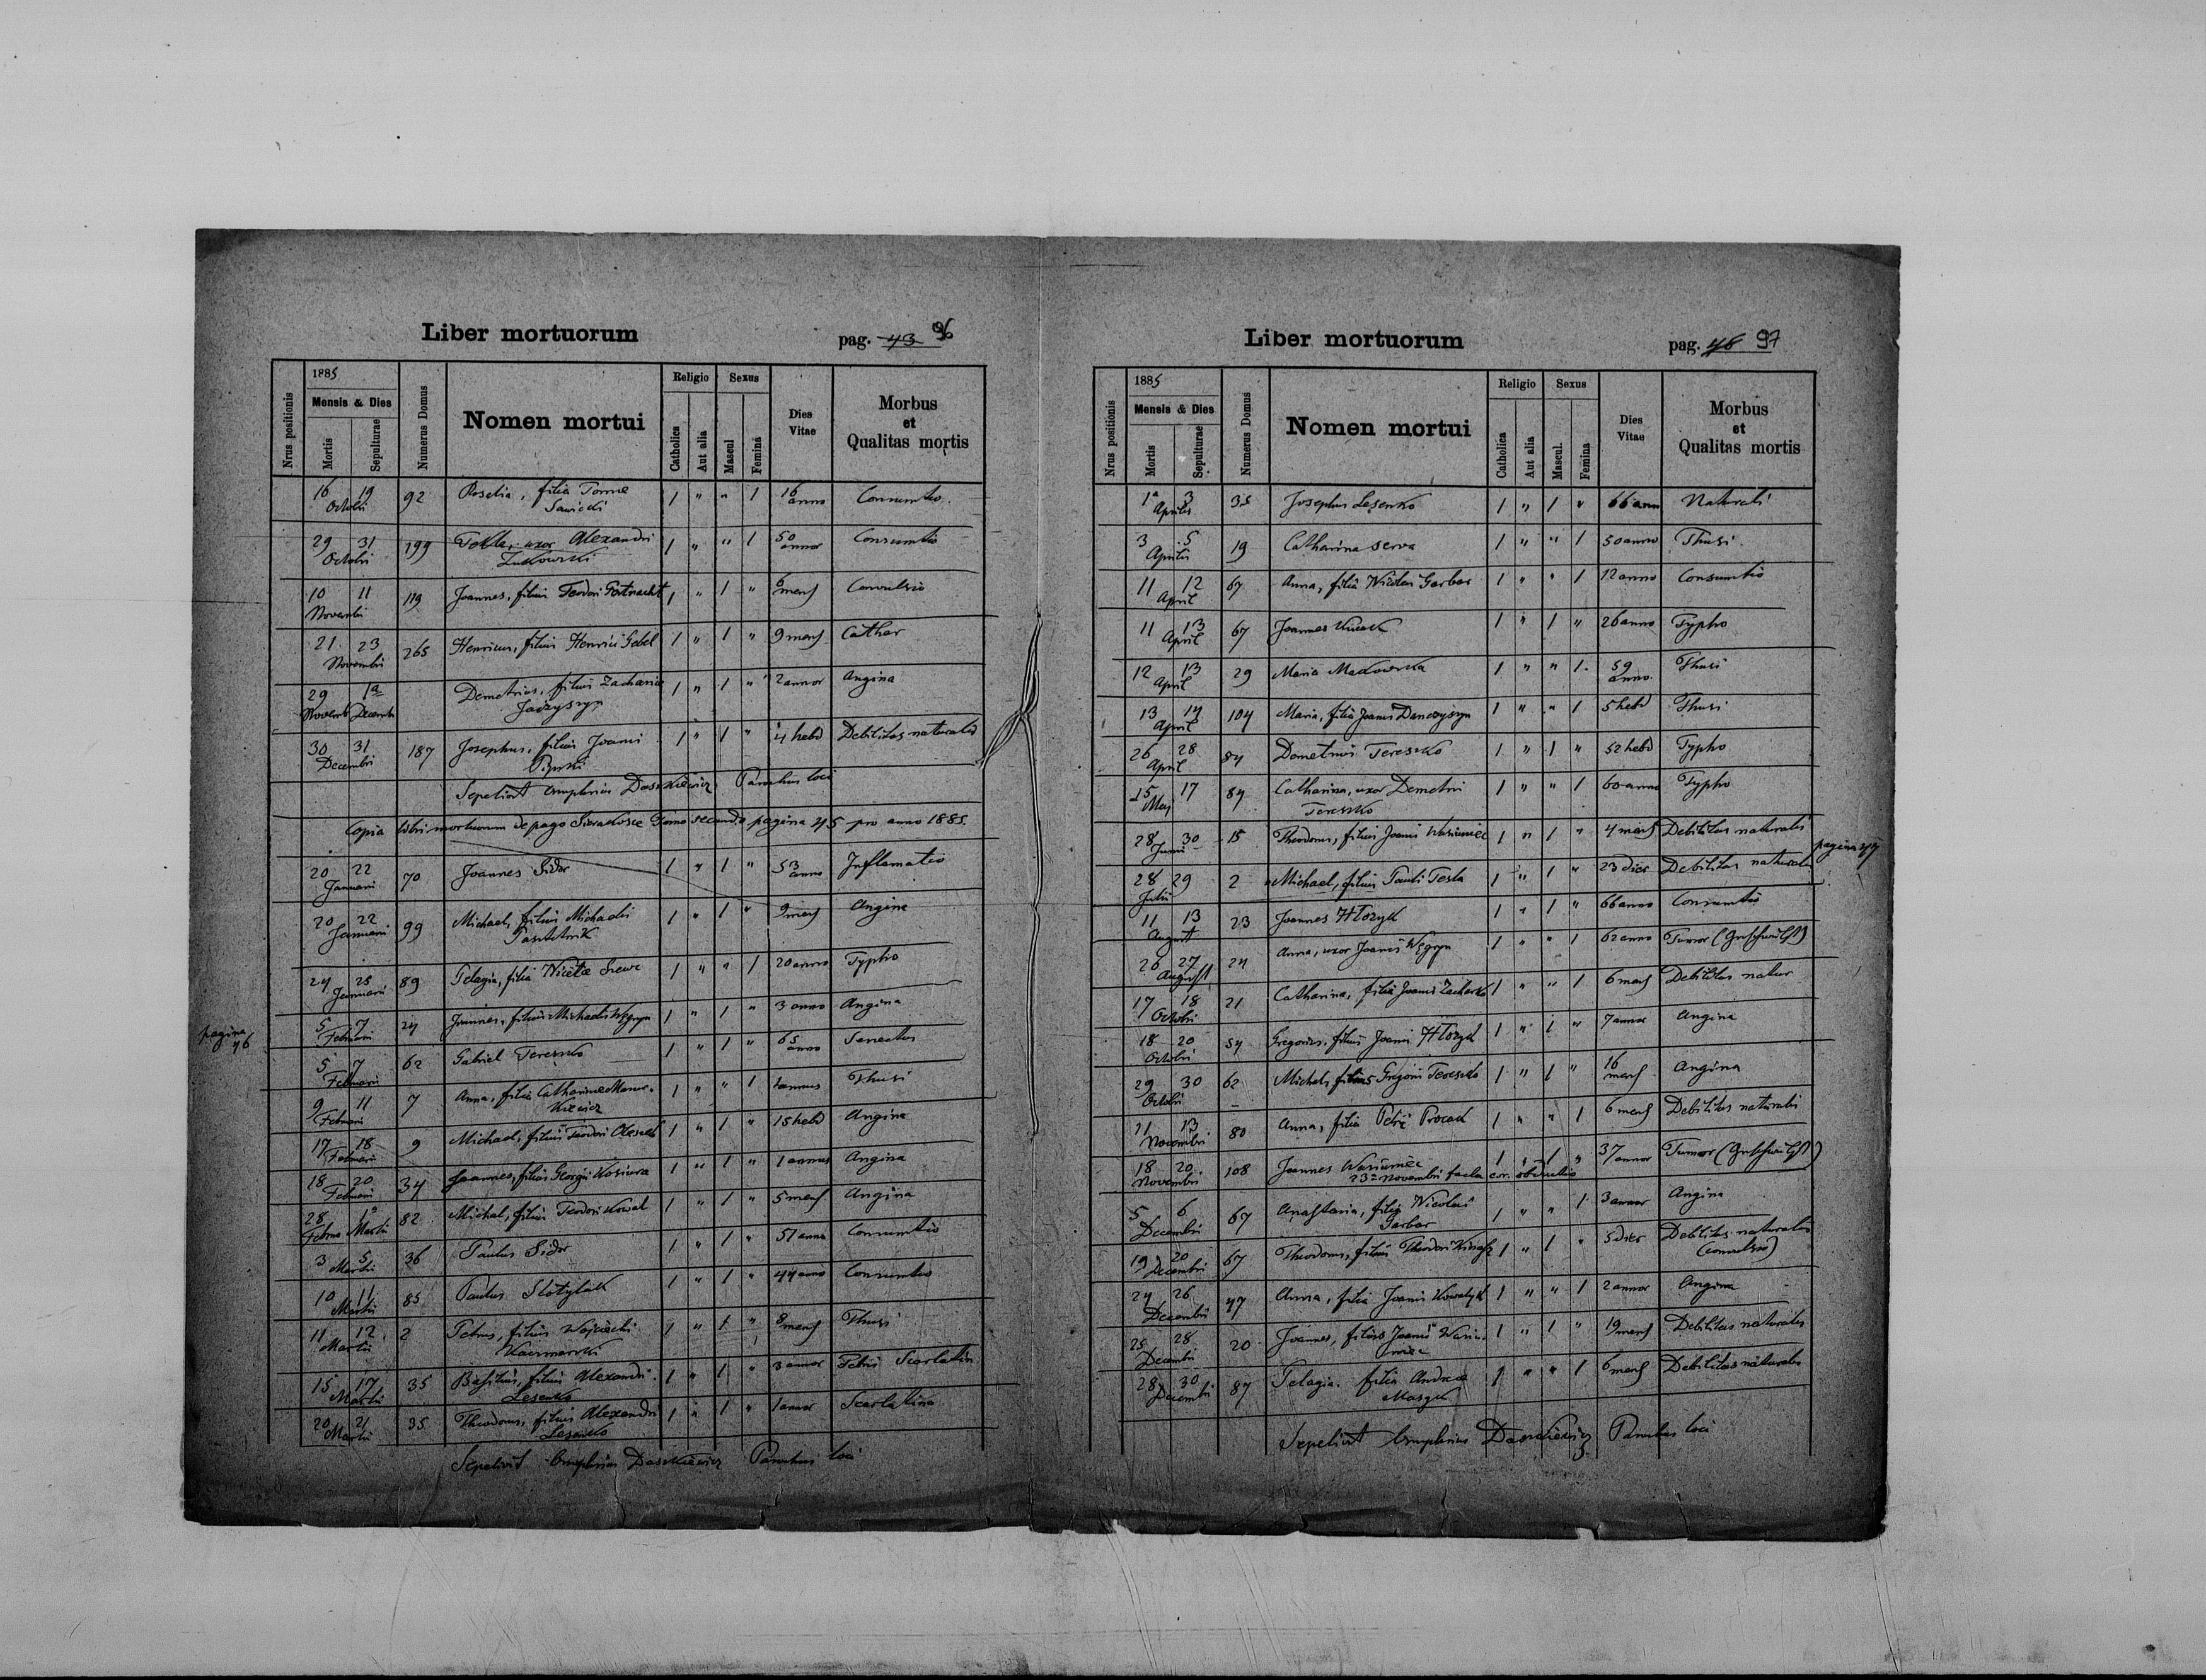 Liber mortuorum
pag. 43 96
Nrus positionis
1885
Mensis & Dies
Mortis
Sepulturae
Numerus Domus
Nomen mortui
Religio
Catholica
Aut alia
Sexus
Mascul
Femina
Dies Vitae
Morbus
et
Qualitas mortis
16 19 92 Roselia, filia Tomae 1 " " 1 16 Consumtio.
Octobri Sawicki anno
29 31 199 Tekla, uxor Alexandri 1 " " 1 50 Consumtio
Octobri Zukowski annor
10 11 119 Joannes, filius Teodori 1 " 1 " 6 Convulsio
Novembri mens
21. 23 265 Henricus, filius Henrici Gebel 1 " 1 " 9 mens Cathar
Novembri
29 1a Demetrius, filius Zachariae 1 " 1 " 2 annor Angina
Novemb Decemb
30 31 187 Josephus, filius Joanni 1 " 1 " 4 hebd Debilitas naturalis
Decembri
Sepelivit Daszkiewicz Parochus loci
Copia libri mortuorum de pago Sierakosce Tomo secundo pagina 45 pro anno 1885.
20 22 70 Joannes Sidor 1 " 1 " 53 Inflamatio
Januarii anno
20 22 99 Michael, filius Michaelis 1 " 1 " 9 mens Angina
Januarii
24 25 89 Pelagia, filia Nicetae 1 " " 1 20 anno Typho
Januarii
pagina 46
5 7 24 Joannes, filius Michaelis Węgryn 1 " 1 " 3 anno Angina
Februarii
5 7 62 Gabriel Tereszko 1 " 1 " 65 Senectus
Februarii anno
9 11 7 Anna, filia Catharinae 1 " " 1 1 annus Thusi
Februarii
17 18 9 Michael, filius Teodori 1 " 1 " 15 hebd Angina
Februarii
18 20 34 Joannes, filius Georgii 1 " 1 " 1 annus Angina
Februarii
28 1a 82 Michal, filius Teodori Kowal 1 " 1 " 5 mens Angina
Februa Martii
3 5 36 Paulus Sidor 1 " 1 " 51 anno Consumtio
Martii
10 11 85 Paulus 1 " 1 " 44 anno Consumtio
Martii
11 12 2 Petrus, filius Wojciechi 1 " 1 " 8 mens Thusi
Martii Kaczmarski
15 17 35 Basilius, filius Alexandri 1 " 1 " 3 annor Febris Scarlatin
Martii Lesenko
20 21 35 Theodorus, filius Alexandri 1 " 1 " 1 annor Scarlatina
Martii Lesenko
Sepelivit Daszkiewicz Parochus loci
Liber mortuorum
pag. 46 97
Nrus positionis
1885
Mensis & Dies
Mortis
Sepulturae
Numerus Domus
Nomen mortui
Religio
Catholica
Aut alia
Sexus
Mascul.
Femina
Dies Vitae
Morbus
et
Qualitas mortis
1a 3 35 Josephus Lesenko 1 " 1 " 66 ann Naturali
Aprilis
3 5 19 Catharina serva 1 " " 1 50 anno Thusi.
Aprilis
11 12 67 Anna, filia Nicolai Garbar 1 " " 1 12 anno Consumtio
April
11 13 67 Joannes 1 " 1 " 26 anno Typho
April
12 13 29 Maria Makowska 1 " " 1. 59 Thusi
April anno.
13 14 104 Maria, filia Joannis Danczyszyn 1 " " 1 5 hebd Thusi
April
26 28 84 Demetrius Tereszko 1 " 1 " 52 hebd Typho
April
15 17 84 Catharina, uxor Demetrii 1 " " 1 60 anno Typho
Maj Tereszko
28 30 15 Theodorus, filius Joanni 1 " 1 " 4 mens Debilitas naturalis
Junii
pagina 47
28 29 2 Michael, filius Pauli Testa 1 " 1 " 23 dies Debilitas naturalis
Julii
11 13 23 Joannes 1 " 1 " 66 anno Consumtio
August
26 27 24 Anna, uxor Joannis Węgryn 1 " " 1 62 anno Tumor (Geschwulst)
August
17 18 21 Catharina, filia Joannis 1 " " 1 6 mens Debilitas natur
Octobri
18 20 54 Gregorius, filius Joanni 1 " 1 " 7 annor Angina
Octobri
29 30 62 Michael, filius Gregorii Tereszko 1 " 1 " 16 Angina
Octobri mens
11 13 80 Anna, filia Petri Procak 1 " " 1 6 mens Debilitas naturalis
Novembri
18 20. 108 Joannes 1 " 1 " 37 annor Tumor (Geschwulst)
Novembri 23a Novembri facta cor. obductio
5 6 67 Anastasia, filia Nicolai 1 " " 1 3 annor Angina
Decembri Garbar
19 20 67 Theodorus, filius Theodori 1 " 1 " 5 dies Debilitas naturalis
Decembri (convulsio)
24 26 47 Anna, filia Joannis Kowalyk 1 " " 1 2 annor Angina
Decembri
25 28 20 Joannes, filius Joannis 1 " 1 " 19 mens Debilitas naturalis
Decembri
28 30 87 Pelagia, filia Andreae 1 " " 1 6 mens Debilitas naturalis
Decembri Mazyk
Sepelivit Daszkiewicz Parochus loci